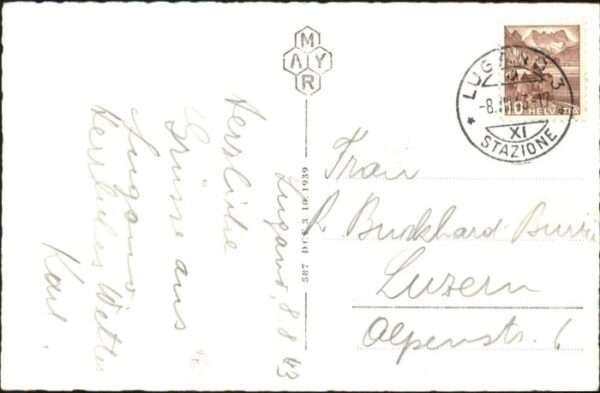 MAYR
LUGANO 3
-8.
XI
STAZIONE
10 HELVETIA
587 DCS 3 10 1939
Lugano, 8.8 43
Herzliche
Grüsse aus
Lugano
Herrliches Wetter
Karl.
Frau
R Burkhard-
Luzern
Alpenstr. 6